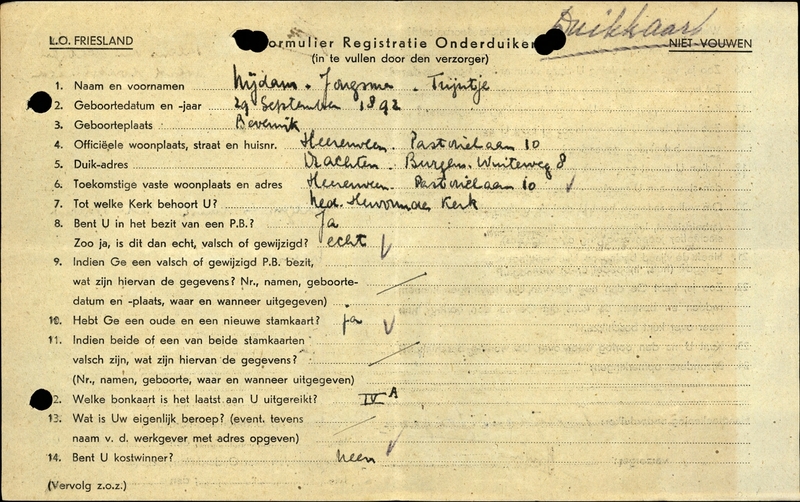 L.O. FRIESLAND
Formulier Registratie Onderduiker
Duikkaart
NIET-VOUWEN
(in te vullen door den verzorger)
1. Naam en voornamen Nijdam - Jongsma - Trijntje
2. Geboortedatum en -jaar 29 September 1892
3. Geboorteplaats Beverwijk
4. Officiëele woonplaats, straat en huisnr. Heerenveen. Pastorielaan 10
5. Duik-adres Drachten. Burgem. Wuiteweg 8
6. Toekomstige vaste woonplaats en adres Heerenveen. Pastorielaan 10
7. Tot welke Kerk behoort U? Ned. Hervormde Kerk
8. Bent U in het bezit van een P.B.? Ja
Zoo ja, is dit dan echt, valsch of gewijzigd? echt
9. Indien Ge een valsch of gewijzigd P.B. bezit,
wat zijn hiervan de gegevens? Nr., namen, geboorte-
datum en -plaats, waar en wanneer uitgegeven)
10. Hebt Ge een oude en een nieuwe stamkaart? ja
11. Indien beide of een van beide stamkaarten
valsch zijn, wat zijn hiervan de gegevens?
(Nr., namen, geboorte, waar en wanneer uitgegeven)
2. Welke bonkaart is het laatst aan U uitgereikt? IV A
13. Wat is Uw eigenlijk beroep? (event. tevens
naam v. d. werkgever met adres opgeven)
14. Bent U kostwinner? neen
(Vervolg z.o.z.)